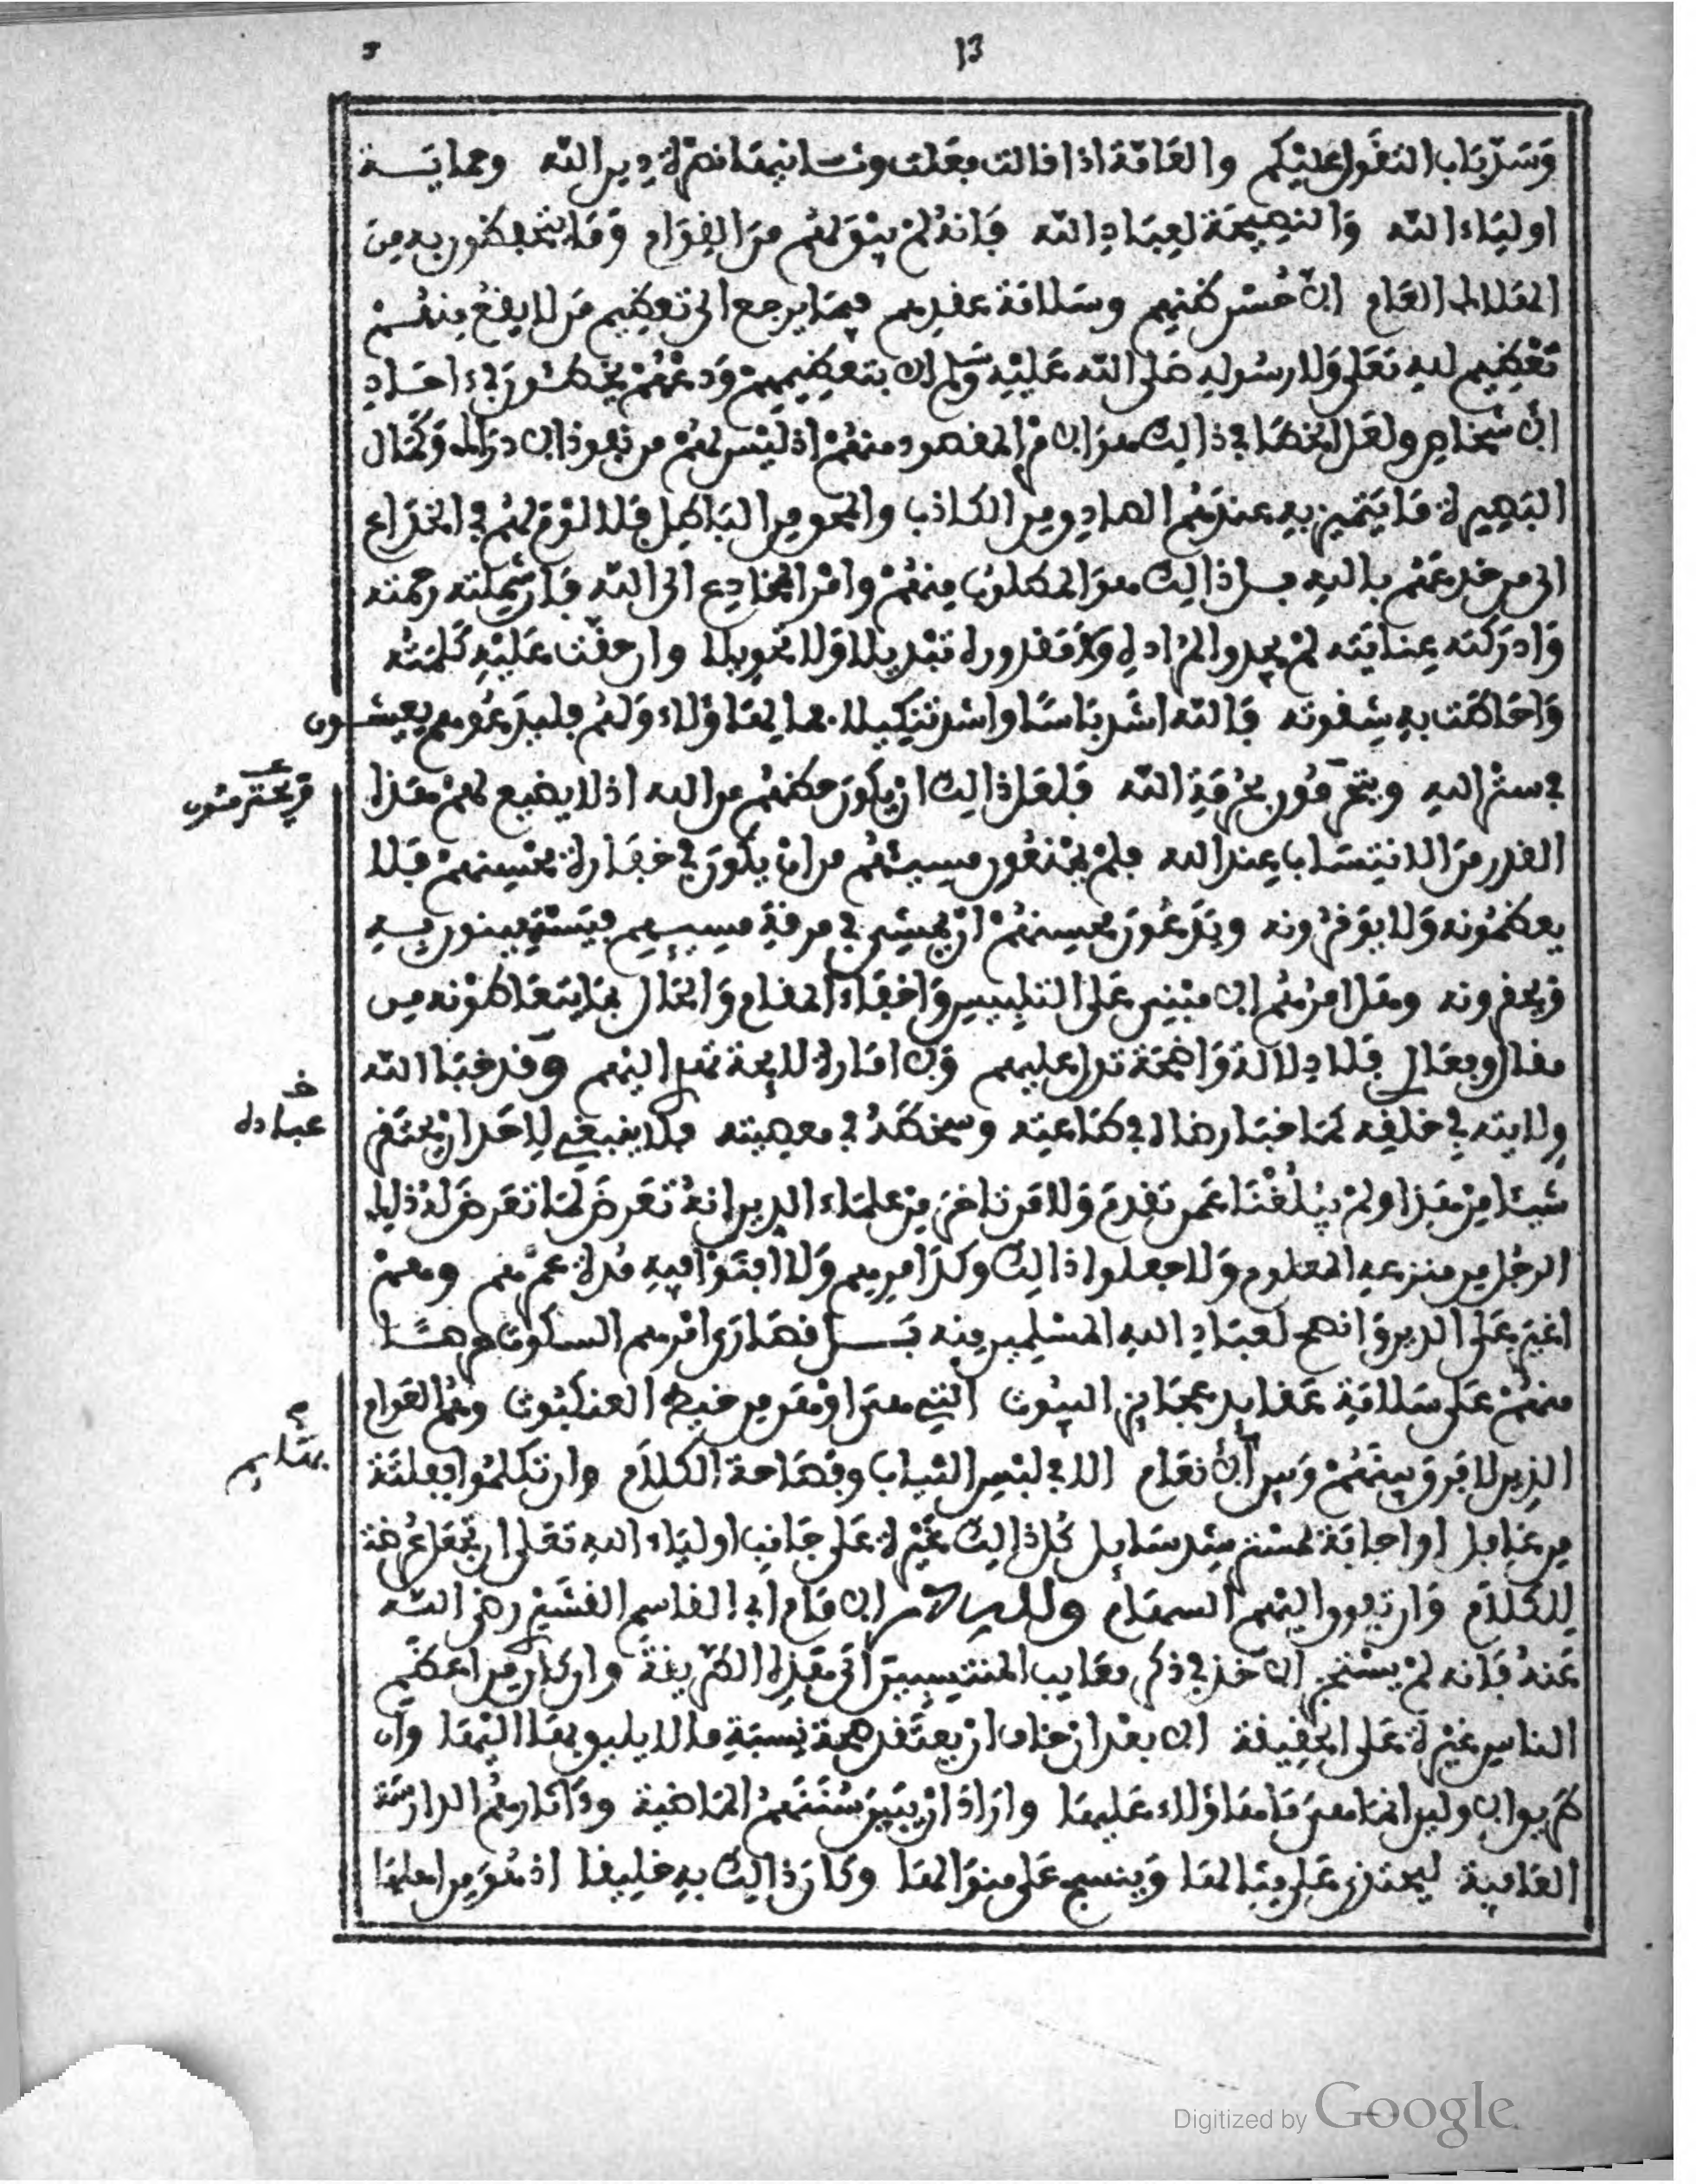 13
وَسَدّ بَاب التقَول عليْكم والعَامّة اذا قالت فعَلت ونسا نيتها نصرة دين الله وحمايَــة
اوليَاء الله وَالنصِيحَة لعِبَادِ الله فَانه لمْ يبْق لهُم مِنَ القِوَام وَمَا يتحَفظون به مِنَ
الملام العَام الا حُسْن ظنهم وسَلامَة عقدهم فيمَا يرجع الى تعظيم مَن لا يقعُ منهُمْ
تعْظِيم لله تعَلى وَلا رسُوله صَلى الله عَليْه وَسَلم الا بتعظيمهمْ وَدعْهُمْ يخطئون في احَادِ
الاشخاص ولعَل الخطا في ذالك هوَ الامْر المقصود منهُمْ اذ ليْس لهُمْ من نفوذ الادراك وَكمَال
البَصِيرة مَا يَتميز به عندهُم الصادق من الكاذب والمحق من البَاطِل فلا لوْمَ لهُم في انخداع
الى من خدعهُم بالله بــل ذالك هوَ المطلوبُ منهُمْ وامْر المخادِع الى الله فَان شملته رحمته
وَادرَكته عِنايَته لمْ يجدوا لمُرَادِه وَلا مَقدوره تبْديلا وَلا تحْويلا وان حقّت عَليْه كلمَته
وَاحَاطت به شِقوته فَالله اشد بَاسًا واشد تنكيلا فما لهَاؤلاء وَلهُم فليدَعُوهم يعيشــون
في ستْر الله ويتحَرّمُون بحُرمَةِ الله فَلعَل ذالك ان يكون حظهُم من الله اذ لا يضيع لهمْ هذا
القدر منَ الانتسَاب عند الله فلمْ يخْنقون مسيئهُم من ان يكون في خفَارة محْسِنهمْ فلا
يعظمُونه وَلا يوَقرُونه ويَدعُونَ محسِنهُمْ انْ يمْشي في مرقةِ مسيئهم فيَسْتهينون بــه
ويحقرونه وهل امرُهُم الا مبْني عَلى التلبيس وَاخفاء المقام وَالحَال بمَا يتعَاطوْنه من
مقال وفعَال فلا دلالة وَاضحَة تدل عليهم وَلا امَارة لايحة تهدى اليْهم وَقد خبَا الله
ولايته في خلقِه كمَا خبَا رضاه في طاعته وسخطهُ في معصيته فلا ينبَغي لاحَد ان يحتَقر
شيئا مِنْ هذا ولمْ يبْلُغْنَا عَمن تقدمَ وَلا مَن تاخر مِنْ علمَاء الدين انهُ تعَرضَ لمَا تعَرضَ لهُ ذالك
الرجُل من منزعه المعلوم وَلا جعلوا ذالك وكدَ امرهم وَلا افتَوْا فيه مُدة عمُرهم وهمْ
اغيَر عَلى الدين وَانصح لعبَادِ الله المسْلِمين منه بَــل قصَارَى امْرهم السكوت هضــما
منهُمْ على سَلامَةِ عَقايد عجَايز البيُوت التي هيَ اوْهَن من خيط العنكبُوت وهُم العَوام
الذين لا فرق بينهُمْ وَبين الانعَام الا في لبْس الثياب وفصَاحة الكلام وان تكلمُوا ففلتَة
من غافل او اجابَة لمسْترشد سَايل كل ذالك غيْرة عَلى جَانب اوليَاء الله تعَلى ان تجْعَل عُرضة
للكلام وَان تفوق اليْهم السهَام ولله در الامَام ابي القاسم القشيْري رضي الله
عَنهُ فانه لمْ يسْتجز الاخذ في ذكر معَايب المنتسِبينَ الى هذه الطريقة وان كان من اعظم
الناس غيْرة عَلى الحقيقة الا بعْد ان خاف ان يعتقد صحة نِسبَةِ ما لا يليق بهَا اليْهَا وان
طريق الاولين انما هيَ مَا هَاؤلاء عَليهَا وارَادَ انْ يبين سُنَنَهمُ الماضية وءاثارهُم الدارسَة
العَافية ليحتذى عَلى مثالها وَينسج عَلى منوَالها وكان ذالك به خليقا اذ هُوَ من اهلها
عباده